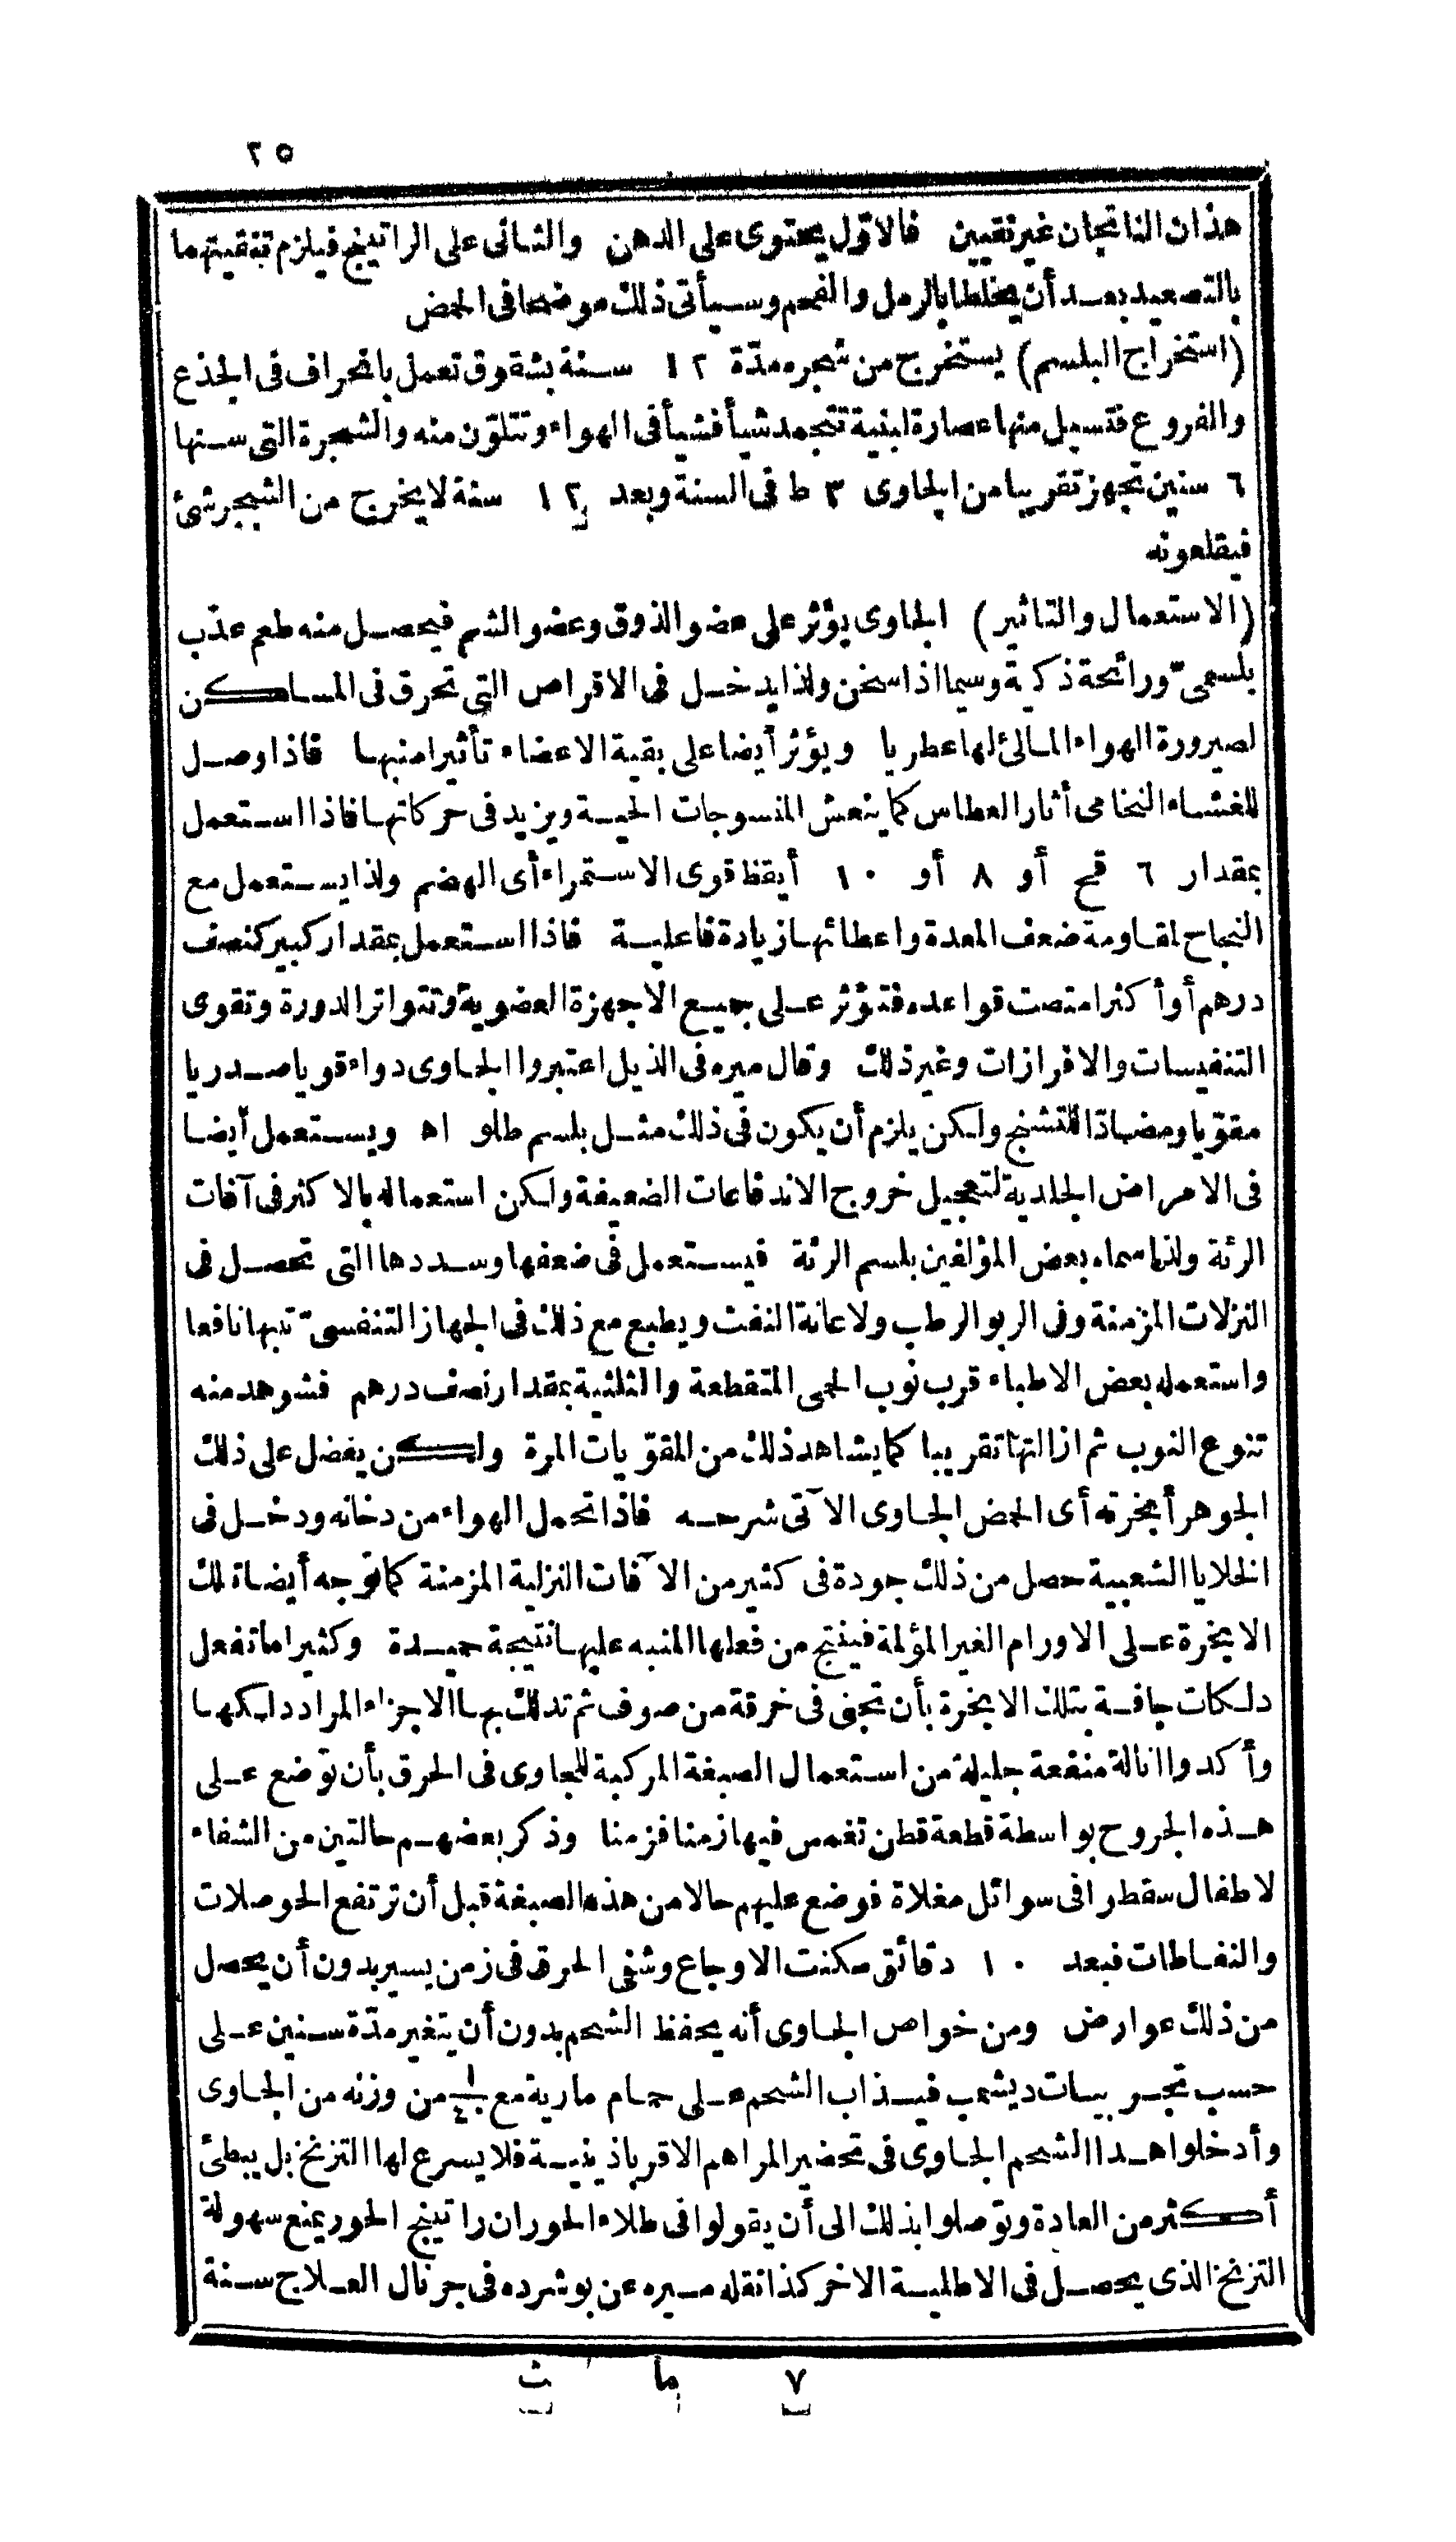 ٢٥
هذان الناتجان غير نقيين فالاوّل يحتوى على الدهن والثانى على الراتينج فيلزم تنقيتهما
بالتصعيد بعد أن يخلطا بالرمل والفحم وسيأتى ذلك موضحا فى الحمض
(استخراج البلسم) يستخرج من شجره مدّة ١٢ سنة بشقوق تعمل بانحراف فى الجذع
والفروع فتسيل منها عصارة لبنية تتجمد شيأ فشيأ فى الهواء وتتلوّن منه والشجرة التى سنها
٦ سنين تجهز تقريبا من الجاوى ٣ ط فى السنة وبعد ١٢ سنة لا يخرج من الشجر شئ
فيقلعونه
(الاستعمال والتاثير) الجاوى يؤثر على عضو الذوق وعضو الشم فيحصل منه طعم عذب
بلسمىّ ورائحة ذكية وسيما اذا سخن ولذا يدخل فى الاقراص التى تحرق فى المساكن
لصيرورة الهواء المالئ لها عطريا ويؤثر أيضا على بقية الاعضاء تأثيرا منبها فاذا وصل
للغشاء النخامى أثار العطاس كما ينعش المنسوجات الحية ويزيد فى حركاتها فاذا استعمل
بمقدار ٦ قمح أو ٨ أو ١٠ أيقظ قوى الاستمراء أى الهضم ولذا يستعمل مع
النجاح لمقاومة ضعف المعدة واعطائها زيادة فاعلية فاذا استعمل بمقدار كبير كنصف
درهم أو أكثر امتصت قواعده فتؤثر على جميع الاجهزة العضوية وتتواتر الدورة وتقوى
التنفيسات والافرازات وغير ذلك وقال ميره فى الذيل اعتبروا الجاوى دواء قويا صدريا
مقوّيا ومضادّا للتشنج ولكن يلزم أن يكون فى ذلك مثل بلسم طلو اه ويستعمل أيضا
فى الامراض الجلدية لتعجيل خروج الاندفاعات الضعيفة ولكن استعماله بالاكثر فى آفات
الرئة ولذا سماه بعض المؤلفين بلسم الرئة فيستعمل فى ضعفها وسددها التى تحصل فى
النزلات المزمنة وفى الربو الرطب ولاعانة النفث ويطبع مع ذلك فى الجهاز التنفسىّ تنبها نافعا
واستعمله بعض الاطباء قرب نوب الحمى المتقطعة والثلثية بمقدار نصف درهم فشوهد منه
تنوع النوب ثم ازالتها تقريبا كما يشاهد ذلك من المقوّيات المرة ولكن يفضل على ذلك
الجوهر أبخرته أى الحمض الجاوى الآتى شرحه فاذا تحمل الهواء من دخانه ودخل فى
الخلايا الشعبية حصل من ذلك جودة فى كثير من الآفات النزلية المزمنة كما توجه أيضا تلك
الابخرة على الاورام الغير المؤلمة فينتج من فعلها المنبه عليها نتيجة حميدة وكثيرا ما تفعل
دلكات جافة بتلك الابخرة بأن تجنى فى خرقة من صوف ثم تدلك بها الاجزاء المراد دلكها
وأكدوا انالة منفعة جليلة من استعمال الصبغة المركبة للجاوى فى الحرق بأن توضع على
هذه الجروح بواسطة قطعة قطن تغمس فيها زمنا فزمنا وذكر بعضهم حالتين من الشفاء
لاطفال سقطوا فى سوائل مغلاة فوضع عليهم حالا من هذه الصبغة قبل أن ترتفع الحوصلات
والنفاطات فبعد ١٠ دقائق سكنت الاوجاع وشفى الحرق فى زمن يسير بدون أن يحصل
من ذلك عوارض ومن خواص الجاوى أنه يحفظ الشحم بدون أن يتغير مدّة سنين على
حسب تجريبات ديشمب فيذاب الشحم على حمام مارية مع ١/٤ من وزنه من الجاوى
وأدخلوا هذا الشحم الجاوى فى تحضير المراهم الاقرباذينية فلا يسرع لها التزنخ بل يبطئ
أكثر من العادة وتوصلوا بذلك الى أن يقولوا فى طلاء الحور ان راتينج الحور يمنع سهولة
التزنخ الذى يحصل فى الاطلية الاخر كذا نقله ميره عن بوشرده فى جرنال العلاج سنة
٧ ما ث